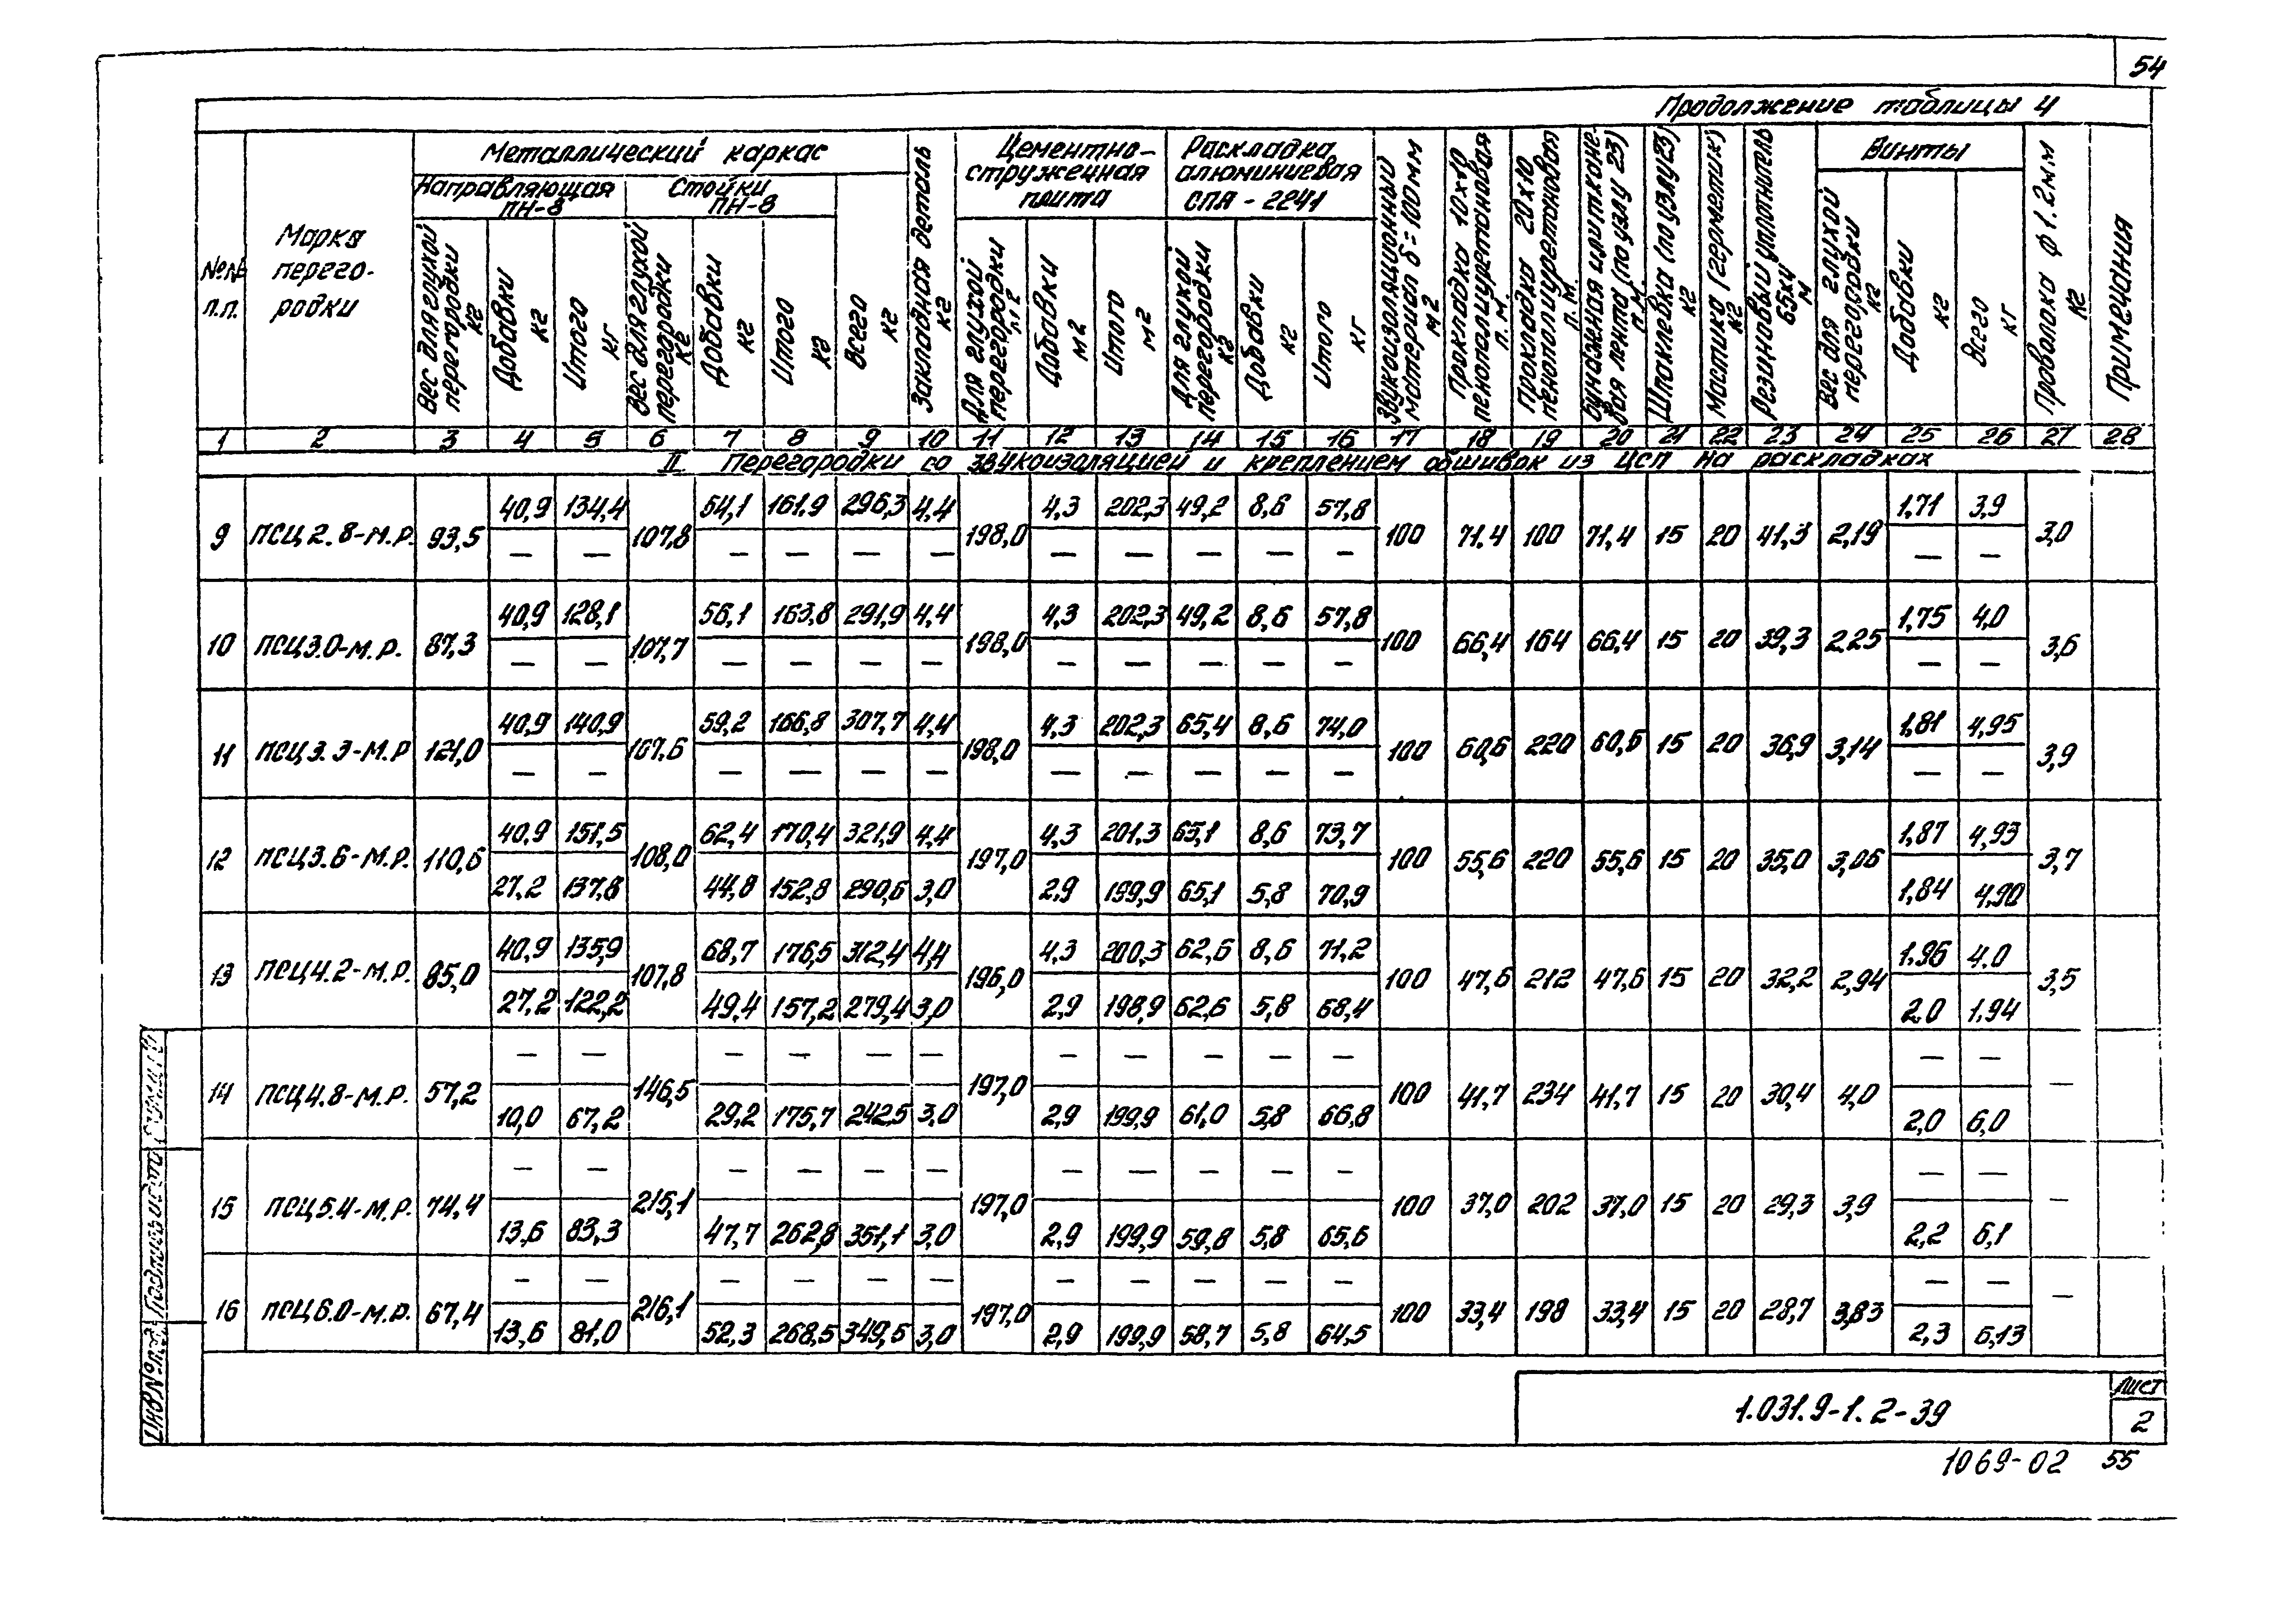 54
Продолжение таблицы 4
№№ п.п.
Марка перего-родки
Металлический каркас
Направляющая ПН-8
Стойки ПН-8
Вес для глухой перегородки кг
Добавки кг
Итого кг
Вес для глухой перегородки кг
Добавки кг
Итого кг
Всего кг
Закладная деталь кг
Цементно-стружечная плита
Для глухой перегородки м2
Добавки м2
Итого м2
Раскладка алюминиевая СПА - 2241
Для глухой перегородки кг
Добавки кг
Итого кг
Звукоизоляционный материал δ=100мм м2
Прокладка 10х10 пенополиуретановая п.м.
Прокладка 20х10 пенополиуретановая п.м.
Шпаклевка (по узлу 23) кг
Мастика (герметик) кг
Резиновый уплотнитель м
Винты
Вес для глухой перегородки кг
Добавки кг
Всего кг
Проволока ф1.2мм кг
Примечания
1 2 3 4 5 6 7 8 9 10 11 12 13 14 15 16 17 18 19 20 21 22 23 24 25 26 27 28
II Перегородки со звукоизоляцией и креплением обшивок из ЦСП на раскладках
40,9 134,4 54,1 161.9 296,3 4,4 4,3 202,3 49,2 8,6 57,8 1,71 3,9
9 ПСЦ2.8-М.Р. 93,5 107,8 198,0 100 71.4 100 71,4 15 20 41,3 2,19 3,0
— — — — — — — — — — — — —
40,9 128,1 56,1 163,8 291,9 4,4 4,3 202,3 49,2 8,6 57,8 1,75 4,0
10 ПСЦ3.0-М.Р. 87,3 107,7 198,0 100 66,4 164 66,4 15 20 39,3 2.25 3,6
— — — — — — — — — — — — —
40,9 140,9 59,2 166,8 307,7 4,4 4,3 202,3 65,4 8,6 74,0 1,81 4,95
11 ПСЦ3.3-М.Р 121,0 107,6 198,0 100 60,6 220 60,6 15 20 36,9 3,14 3,9
— — — — — — — — — — — — —
40,9 151,5 62,4 170,4 321,9 4,4 4,3 201,3 65,1 8,6 73,7 1,87 4,93
12 ПСЦ3.6-М.Р. 110,6 108,0 197,0 100 55,6 220 55,6 15 20 35,0 3,06 3,7
27,2 137,8 44,8 152,8 290,6 3,0 2,9 199,9 65,1 5,8 70,9 1,84 4,90
40,9 135,9 68,7 176,5 312,4 4,4 4,3 200,3 62,6 8,6 71,2 1,96 4.0
13 ПСЦ4.2-М.Р. 85,0 107,8 196,0 100 47,6 212 47,6 15 20 32,2 2,94 3,5
27,2 122,2 49,4 157,2 279,4 3,0 2,9 198,9 62,6 5,8 68,4 2.0 1.94
— — — — — — — — — — — — —
14 ПСЦ4.8-М.Р. 57,2 146,5 197,0 100 41,7 234 41,7 15 20 30,4 4,0 —
10,0 67,2 29,2 175,7 242,5 3,0 2,9 199,9 61,0 5,8 66,8 2,0 6,0
— — — — — — — — — — — — —
15 ПСЦ5.4-М.Р. 74,4 215,1 197,0 100 37,0 202 37,0 15 20 29,3 3,9 —
13,6 83,3 47,7 262,8 351,1 3,0 2,9 199,9 59,8 5,8 65,6 2,2 6,1
— — — — — — — — — — — — —
16 ПСЦ6.0-М.Р. 67,4 216,1 197,0 100 33,4 198 33,4 15 20 28,7 3,83 —
13,6 81,0 52,3 268,5 349,5 3,0 2,9 199,9 58,7 5,8 64,5 2,3 6,13
Инв№ Подпись и дата
1.031.9-1.2-39
Лист
2
1069-02 55